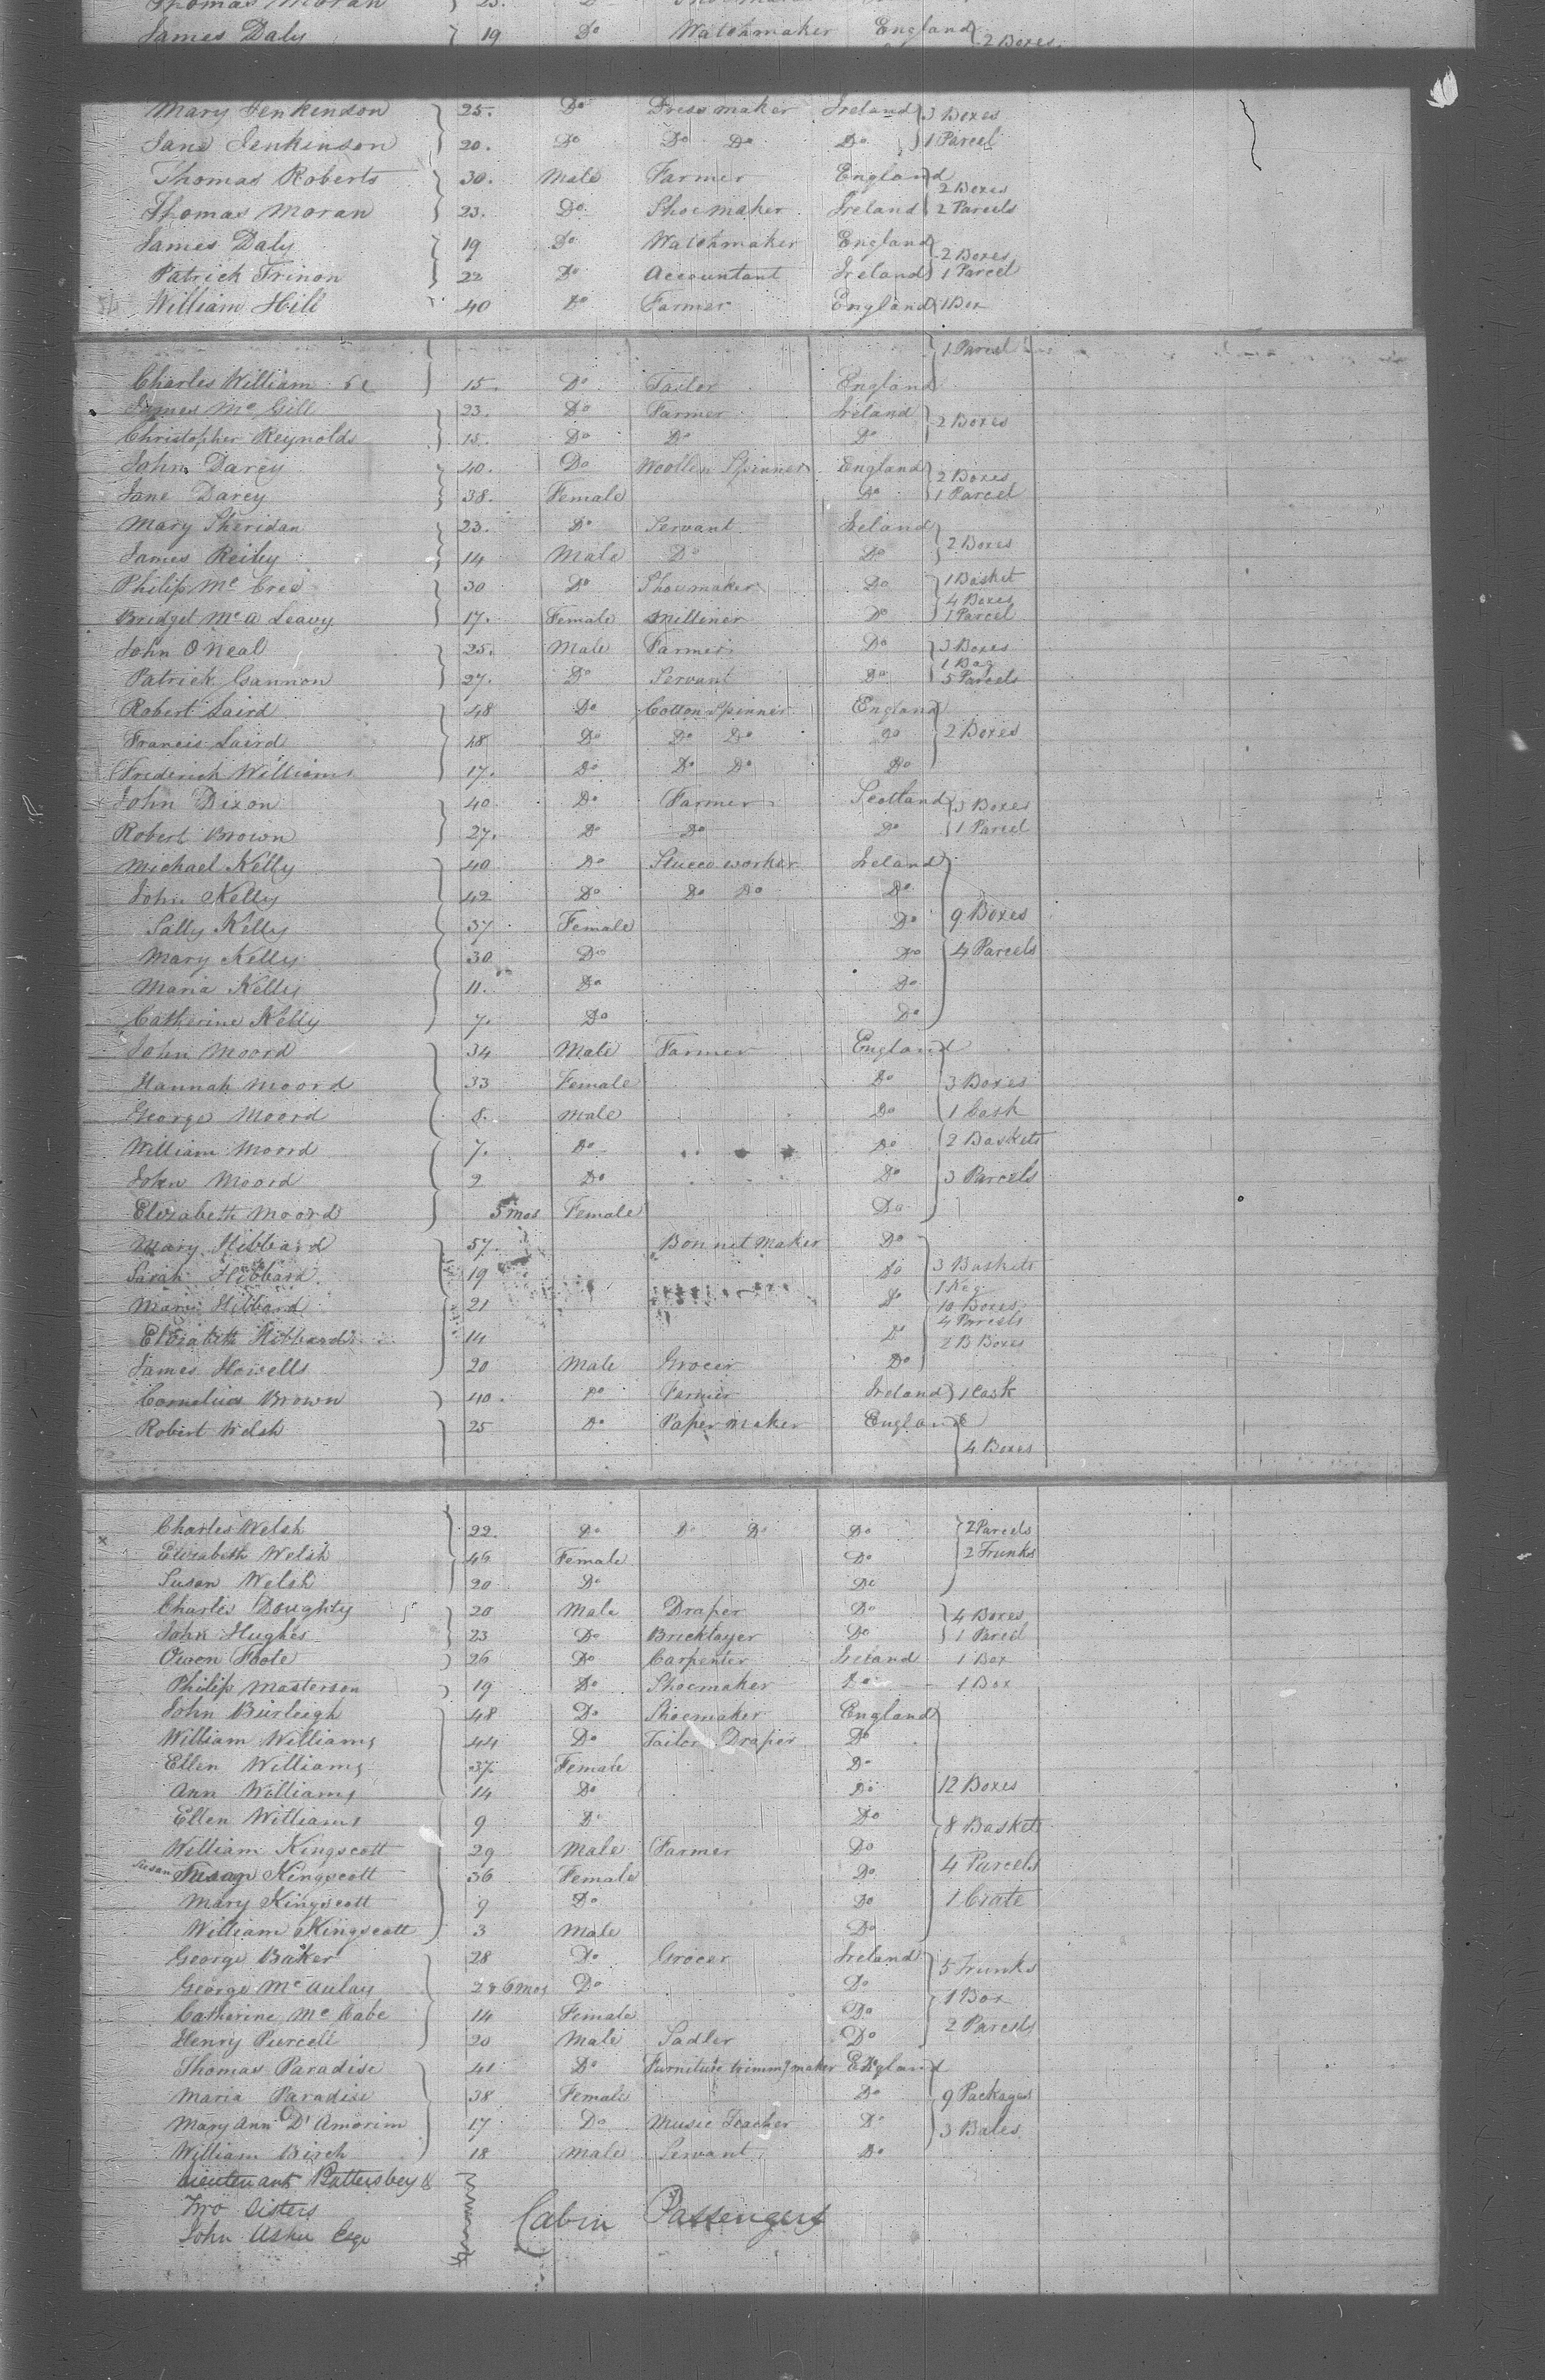 Thomas Moran } 23. Do Shoemaker
James Daly } 19 Do Watchmaker England } 2 Boxes
Mary Jenkinson } 25. Do Dressmaker Ireland } 3 Boxes
Jane Jenkinson } 20. Do Do Do Do } 1 Parcel
Thomas Roberts } 30. Male Farmer England } 2 Boxes
Thomas Moran } 23. Do Shoemaker Ireland } 2 Parcels
James Daly } 19 Do Watchmaker England } 2 Boxes
Patrick Trinon } 22 Do Accountant Ireland } 1 Parcel
William Hill 40 Do Farmer England } 1 Box
} 1 Parcel
Charles William } 15. Do Tailor England
James Mc Gill } 23. Do Farmer Ireland } 2 Boxes
Christopher Reynolds } 15. Do Do Do
John Darcy } 40. Do Woollen Spinner England } 2 Boxes
Jane Darcy } 38. Female Do } 1 Parcel
Mary Sheridan } 23. Do Servant Ireland } 2 Boxes
James Reiley } 14 Male Do Do
Philip Mc Cree } 30 Do Shoemaker Do } 1 Basket
4 Boxes
Bridget Mc a Leavy } 17. Female Milliner Do 1 Parcel
John O Neal } 25. Male Farmer Do } 3 Boxes
1 Bag
Patrick Gannon } 27. Do Servant Do 5 Parcels
Robert Laird } 48 Do Cotton Spinner England
Francis Laird } 18 Do Do Do Do } 2 Boxes
Frederick Williams } 17. Do Do Do Do
John Dixon } 40. Do Farmer Scotland } 3 Boxes
Robert Brown } 27. Do Do Do } 1 Parcel
Michael Kelly } 40 Do Stucco worker Ireland
John Kelly 42 Do Do Do Do
Sally Kelly 37 Female Do } 9 Boxes
Mary Kelly 30 Do Do } 4 Parcels
Maria Kelly 11. Do Do
Catherine Kelly } 7. Do Do
John Moord } 34 Male Farmer England
Hannah Moord 33 Female Do } 3 Boxes
George Moord 8. Male Do 1 Cask
William Moord 7. Do Do 2 Baskets
John Moord 2 Do Do 3 Parcels
Elizabeth Moord } 5 mos Female Do
Mary Hibbard } 57. Bonnet Maker Do
Sarah Hibbard 19 Do 3 Baskets
1 Keg
Mary Hibbard 21 Do 10 Boxes
4 Parcels
Elizabeth Hibbard 14 Do 2 B Boxes
James Howells } 20 Male Grocer Do
Cornelius Brown } 40. Do Farmer Ireland } 1 Cask
Robert Welsh } 25 Do Paper maker England
4 Boxes
Charles Welsh } 22. Do Do Do Do } 2 Parcels
Elizabeth Welsh 46 Female Do 2 Trunks
Susan Welsh 20 Do Do
Charles Doughty } 20 Male Draper Do } 4 Boxes
John Hughes } 23 Do Bricklayer Do } 1 Parcel
Owen Foote } 26 Do Carpenter Ireland 1 Box
Philip Masterson } 19 Do Shoemaker Do 1 Box
John Burleigh } 48 Do Shoemaker England
William Williams 44 Do Tailor Draper Do
Ellen Williams 37 Female Do
Ann Williams 14 Do Do 12 Boxes
Ellen Williams 9 Do Do 8 Baskets
William Kingscott 29 Male Farmer Do
Susan Kingscott 36 Female Do 4 Parcels
Mary Kingscott 9 Do Do 1 Crate
William Kingscott } 3 Male Do
George Baker } 28 Do Grocer Ireland } 5 Trunks
George Mc Aulay 2 & 6 mos Do Do
1 Box
Catherine Mc Cabe 14 Female Do
Henry Purcell } 20 Male Sadler Do 2 Parcels
Thomas Paradise } 41 Do Furniture trimmg maker England
Maria Paradise 38 Female Do 9 Packages
Mary Ann D'Amorim 17 Do Music Teacher Do 3 Bales
William Birch } 18 Male Servant Do
Lieutenant Battersbey &
Two Sisters
Cabin Passengers
John Ashe Esqr